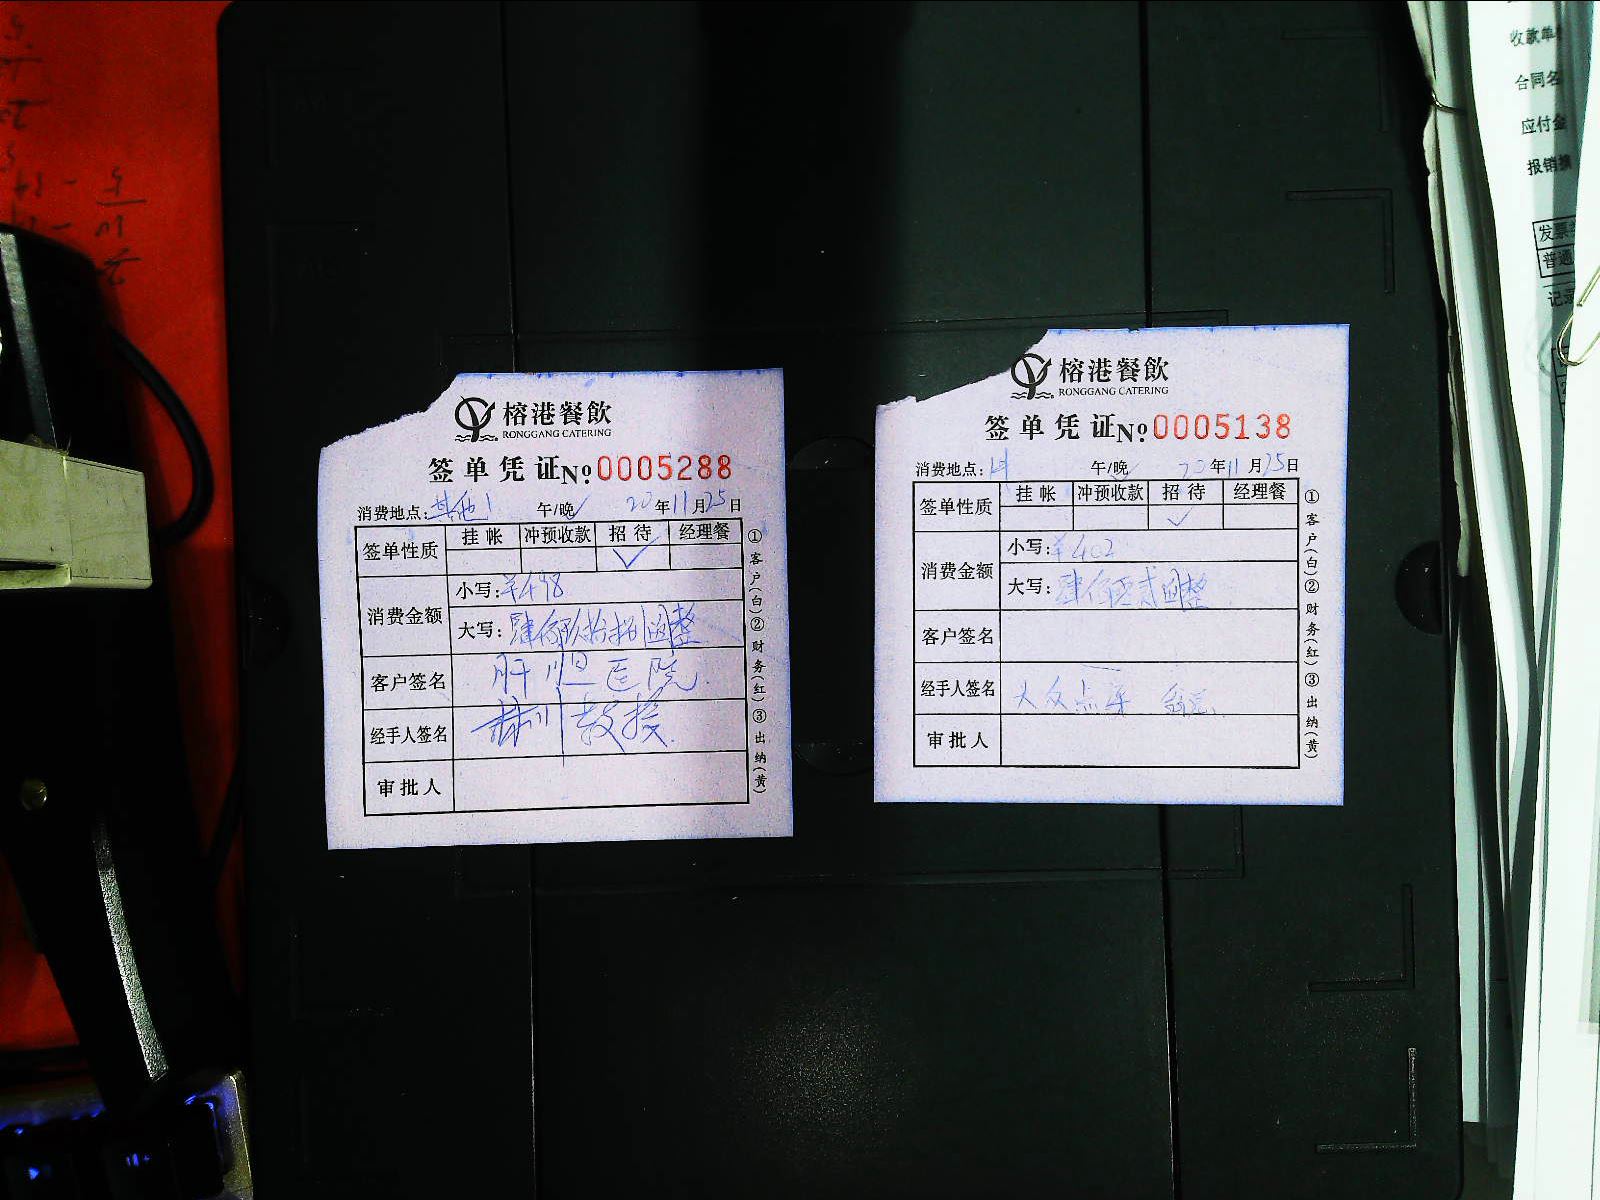 榕港餐飲
RONGGANG CATERING
签单凭证№0005288
消费地点:其他1 午/晚✓ 20年11月25日
签单性质 挂帐 冲预收款 招待 经理餐
✓
消费金额 小写:¥498
大写:肆佰玖拾捌圆整
客户签名 肝胆医院
经手人签名 教授
审批人
①客户(白)②财务(红)③出纳(黄)
榕港餐飲
RONGGANG CATERING
签单凭证№0005138
消费地点: 午/晚✓ 20年11月25日
签单性质 挂帐 冲预收款 招待 经理餐
✓
消费金额 小写:¥402
大写:肆佰零贰圆整
客户签名
经手人签名 大众点评
审批人
①客户(白)②财务(红)③出纳(黄)
收款单
合同名
应付金
报销摘
发票
普通
记录